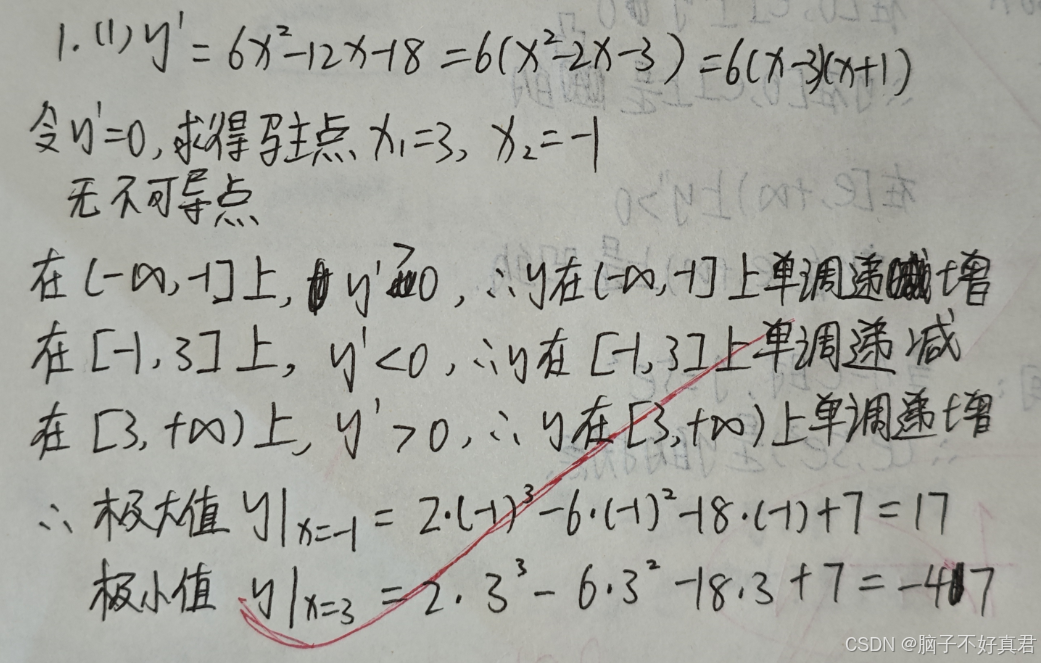 1.(1) y' = 6x²-12x-18 = 6(x²-2x-3) = 6(x-3)(x+1)
令y'=0,求得驻点 x₁=3, x₂=-1
无不可导点
在(-∞,-1]上, y'>0, ∴y在(-∞,-1]上单调递增
在[-1,3]上, y'<0, ∴y在[-1,3]上单调递减
在[3,+∞)上, y'>0, ∴y在[3,+∞)上单调递增
∴极大值 y|x=-1 = 2·(-1)³-6·(-1)²-18·(-1)+7=17
极小值 y|x=3 = 2·3³-6·3²-18·3+7=-47
CSDN @脑子不好真君